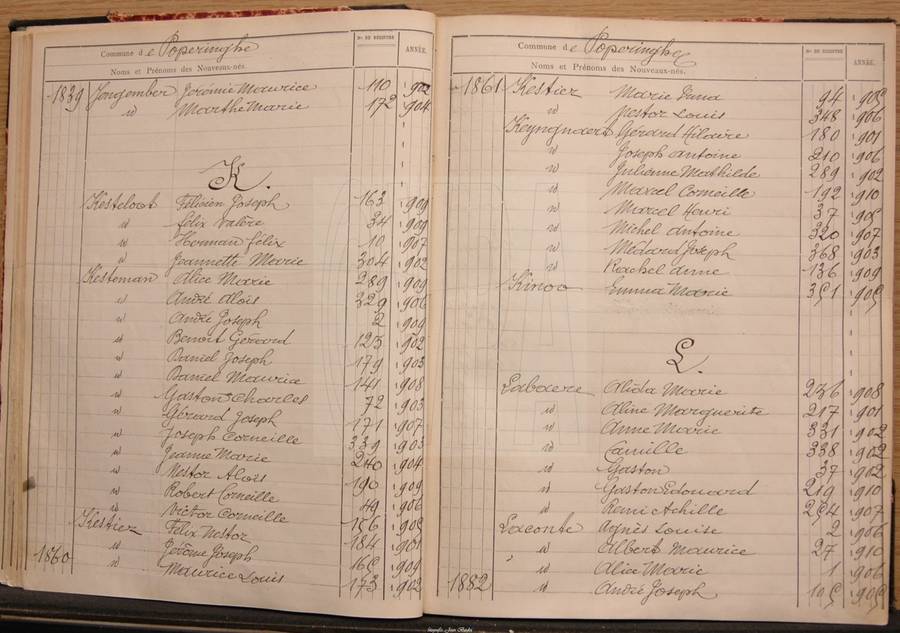 Commune de Poperinghe
Nos DE REGISTRE
ANNÉE.
Noms et Prénoms des Nouveaux-nés.
1839 Jongomber Jérémie Maurice 110 902
id Marthe Marie 172 904
K.
Kesteloot Félicien Joseph 163 909
id Félix Valère 34 909
id Herman Félix 10 907
id Jeannette Marie 304 902
Kesteman Alice Marie 289 909
id André Aloïs 229 906
id André Joseph 2 909
id Benoit Gérard 123 902
id Daniel Joseph 179 903
id Daniel Maurice 141 908
id Gaston Charles 72 903
id Gérard Joseph 171 907
id Joseph Corneille 339 903
id Jeanne Marie 240 904
id Nestor Aloïs 190 909
id Robert Corneille 49 906
id Victor Corneille 186 905
Kestier Félix Nestor 184 901
1860 id Jérôme Joseph 165 909
id Maurice Louis 173 902
Commune de Poperinghe
Nos DE REGISTRE
ANNÉE.
Noms et Prénoms des Nouveaux-nés.
1861 Kestier Marie 94 905
id Nestor Louis 348 906
Keyngnaert Gérard Hilaire 180 901
id Joseph Antoine 210 906
id Julienne Mathilde 289 902
id Marcel Corneille 192 910
id Marcel Henri 37 905
id Michel Antoine 320 907
id Médard Joseph 368 903
id Rachel Anne 136 909
Kinoo Emma Marie 351 905
L.
Labaere Alida Marie 236 908
id Aline Marguerite 217 901
id Anne Marie 331 902
id Camille 338 902
id Gaston 37 902
id Gaston Edouard 219 910
id Remi Achille 254 907
Laconte Agnès Louise 2 906
id Albert Maurice 27 910
id Alice Marie 1 906
1882 id André Joseph 105 905